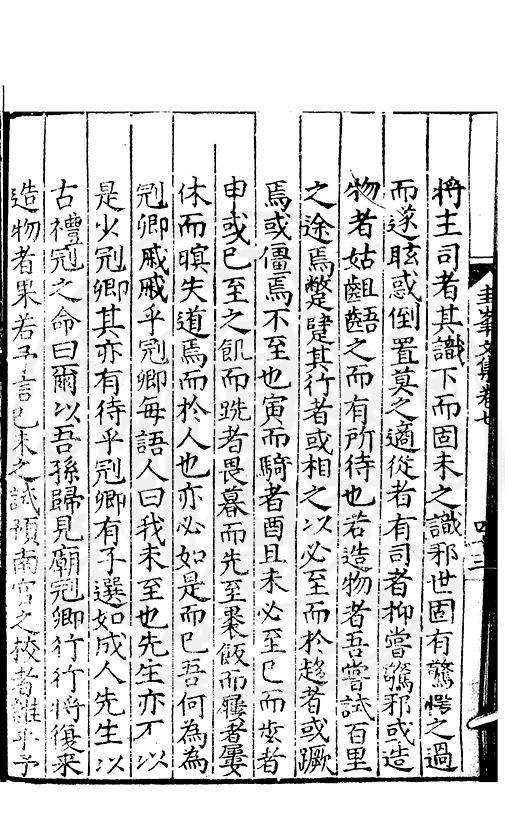 圭峯文集卷七
將主司者其識下而固未之識邪世固有驚愕之過
而遂眩惑倒置莫之適從者有司者抑嘗驚邪或造
物者姑齟齬之而有所待也若造物者吾嘗試百里
之途焉蹩躠其行者或相之以必至而於趨者或蹶
焉或僵焉不至也寅而騎者酉且未必至巳而步者
申或已至之飢而跣者畏暮而先至褁飯而屨者屢
休而暝失道焉而於人也亦必如是而已吾何為為
冠卿戚戚乎冠卿每語人曰我未至也先生亦不以
是少冠卿其亦有待乎冠卿有子選如成人先生以
古禮冠之命曰爾以吾孫歸見廟冠卿行行將復來
造物者果若予言已未之試預南宮之校者誰乎予